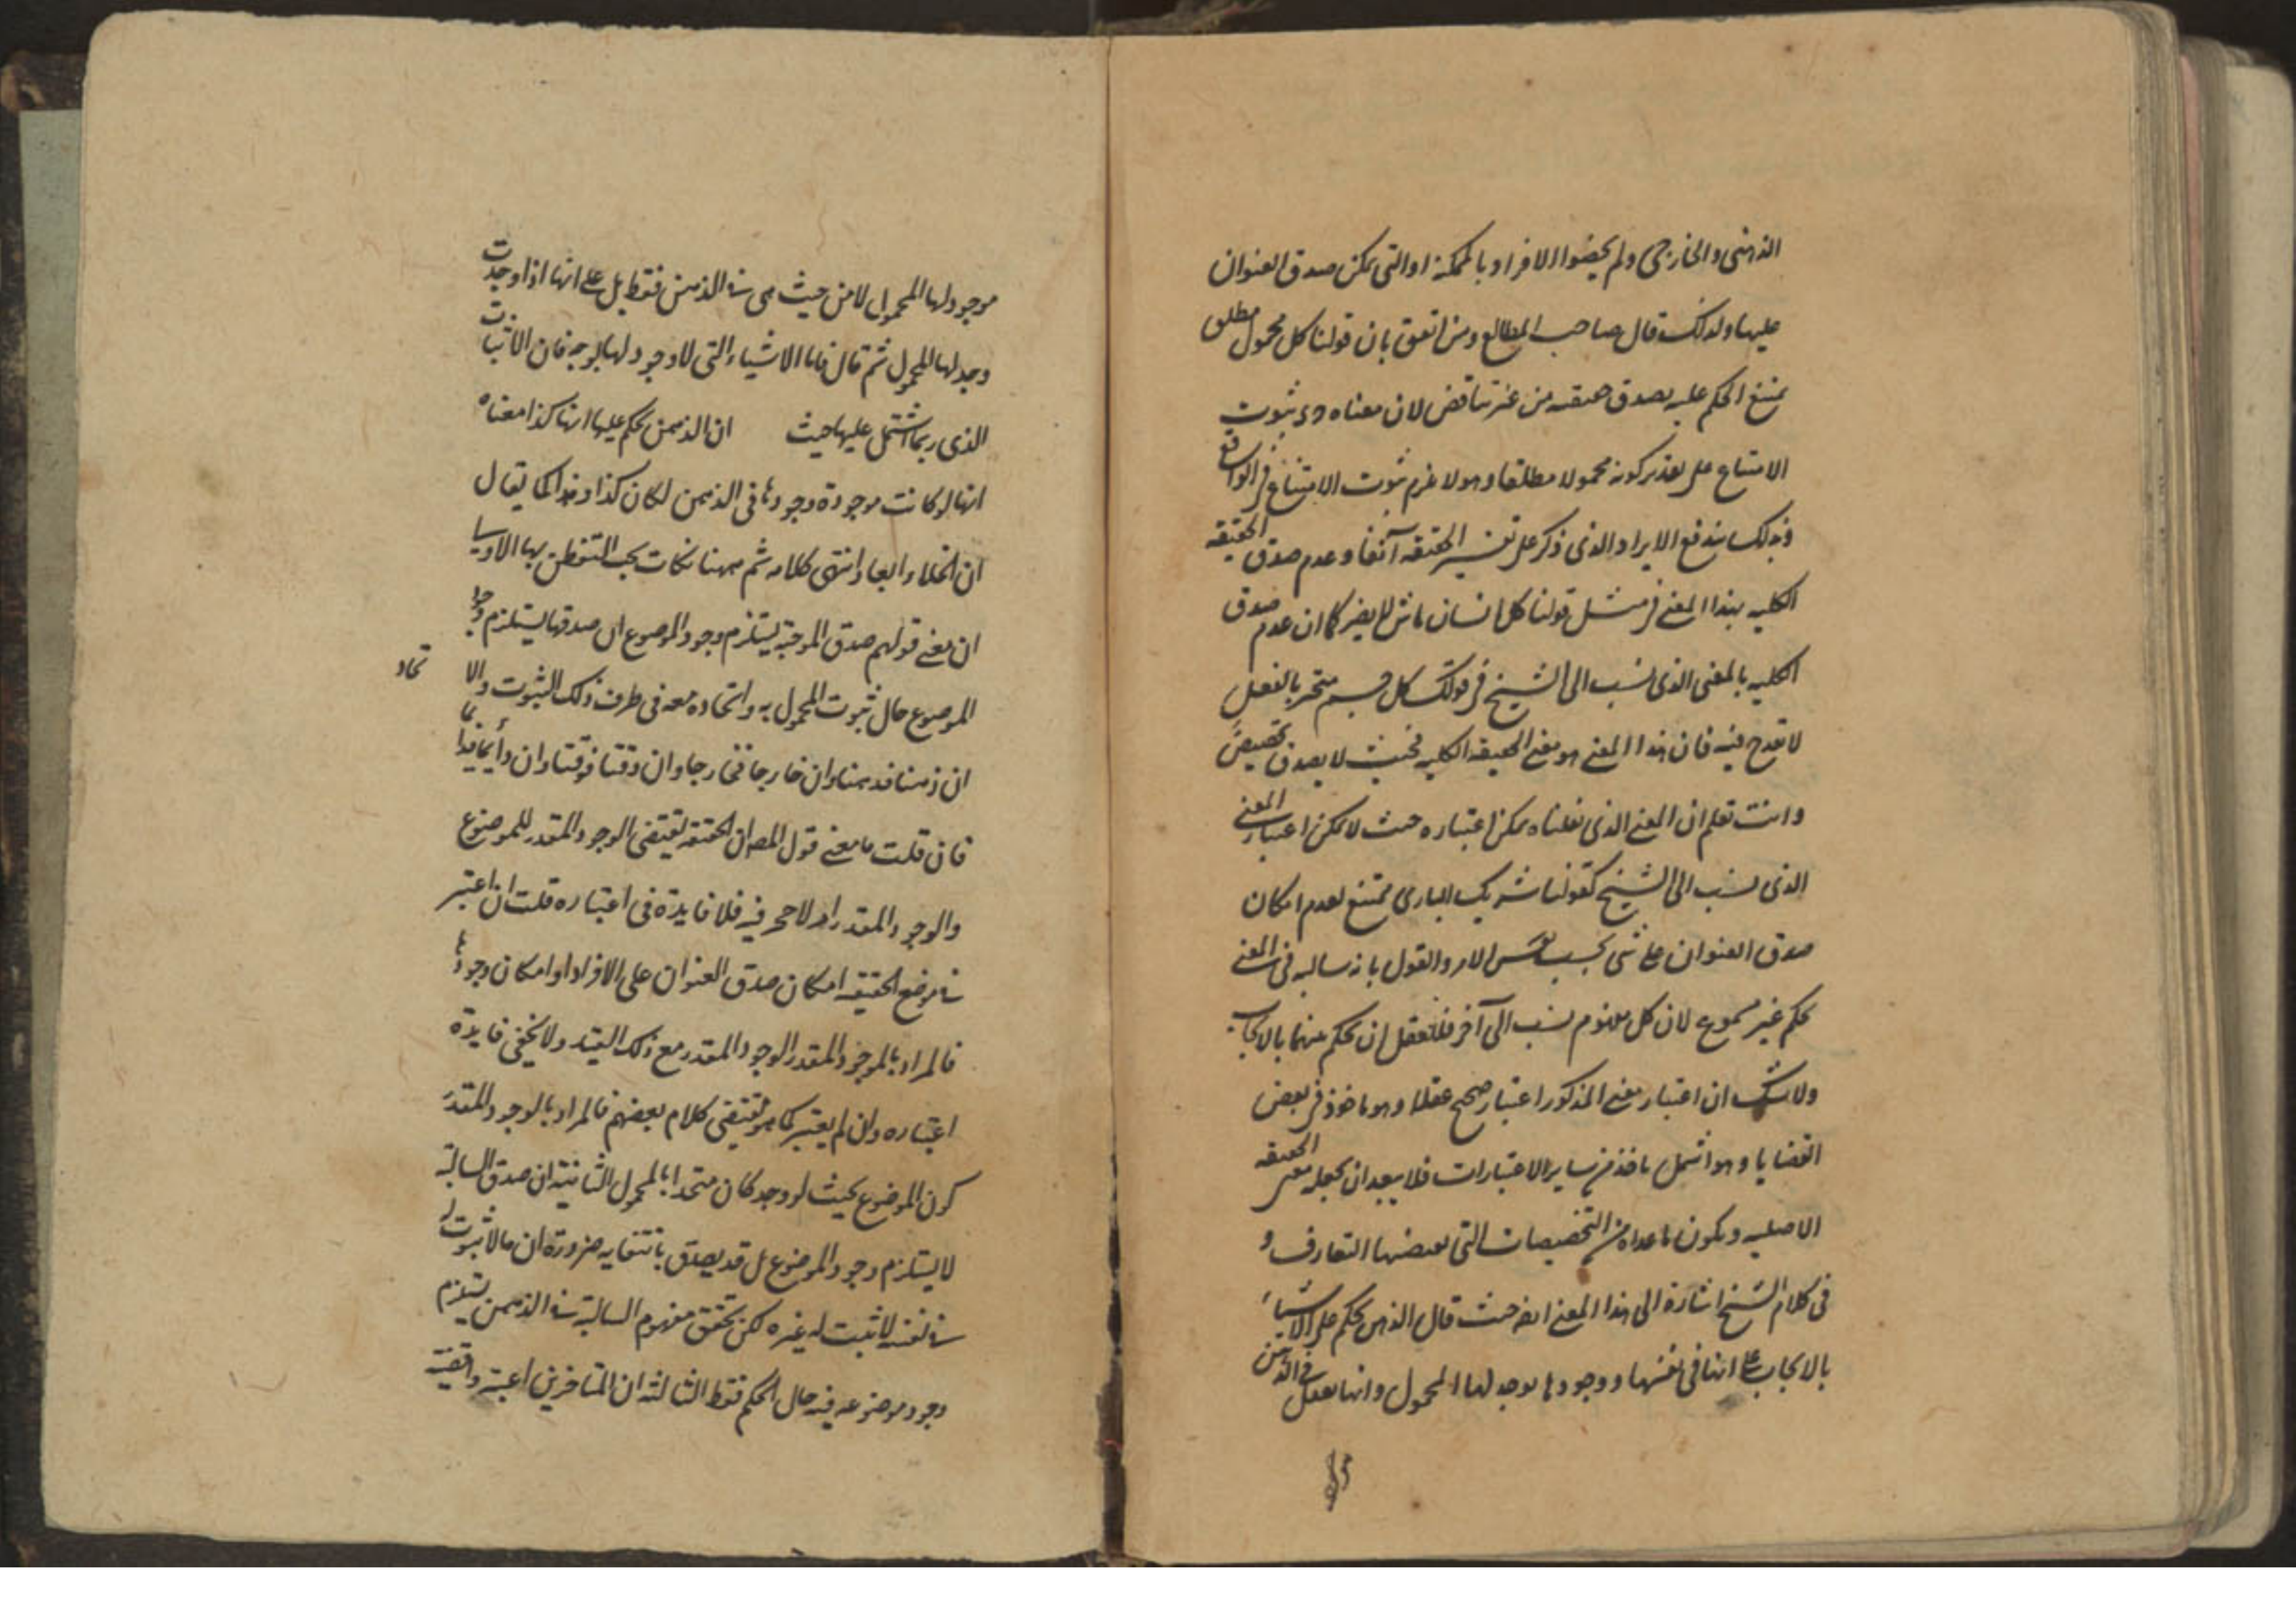 الذهنى والخارجى ولم يخصوا الافراد بالممكنة او التى يمكن صدق العنوان
عليها ولذلك قال صاحب المطالع ومن اتفق بان قولنا كل مجهول مطلق
يمتنع الحكم عليه يصدق حقيقيه من غير تناقض لان معناه ثبوت
الامتناع على تقدير كونه مجهولا مطلقا وهو لا يلزم ثبوت الامتناع فى الواقع
وبذلك يندفع الايراد الذى ذكر على تفسير الحقيقه آنفا وعدم صدق الحقيقه
الكليه بهذا المعنى فى مثل قولنا كل انسان ماش لا يضر كما ان عدم صدق
الكليه بالمعنى الذى نسب الى الشيخ فى قولك كل جسم متحيز بالفعل
لا تقدح فيه فان هذا المعنى هو معنى الحقيقه الكليه فحيث لا يصدق تخصيص
وانت تعلم ان المعنى الذى نقلناه يمكن اعتباره حيث لا يمكن اعتبار المعنى
الذى نسب الى الشيخ كقولنا شريك البارى ممتنع لعدم امكان
صدق العنوان على شى بحسب نفس الامر والقول بانه سالبه فى المعنى
حكم غير مسموع لان كل مفهوم نسب الى آخر فللعقل ان يحكم بينهما بالايجاب
ولا شك ان اعتبار معنى المذكور اعتبار صحيح عقلا وهو ماخوذ فى بعض
القضايا وهو اشمل ماخذ من ساير الاعتبارات فلا يبعد ان يجعله معنى الحقيقه
الاصليه ويكون ما عداه من التخصيصات التى يقتضيها التعارف و
فى كلام الشيخ اشارة الى هذا المعنى ايضا حيث قال الذهن يحكم على الاشياء
بالايجاب على انها فى نفسها ووجودها يوجد لها المحمول وانها تعقل فى الذهن
موجود لها المحمول لا من حيث هى فى الذهن فقط بل على انها اذا وجدت
وجد لها المحمول ثم قال فاما الاشياء التى لا وجود لها بوجه فان الاثبات
الذى ربما اشتمل عليها حيث ان الذهن يحكم عليها انها كذا معناه
انها لو كانت موجودة وجودها فى الذهن لكان كذا وهذا كما يقال
ان الخلاء ابعاد انتهى كلامه ثم ههنا نكات يجب التفطن بها الاولى
ان معنى قولهم صدق الموجبة يستلزم وجود الموضوع ان صدقها يستلزم وجود
الموضوع حال ثبوت المحمول به واتحاده معه فى ظرف ذلك الثبوت والا
تحاد
ان ذهنا فذهنا وان خارجا فخارجا وان وقتا فوقتا وان دائما فدائما
فان قلت ما معنى قول المص ان الحقيقة تقتضى الوجود المقدر للموضوع
والوجود المقدر امر لا حجر فيه فلا فايدة فى اعتباره قلت ان اعتبر
فى موضوع الحقيقيه امكان صدق العنوان على الافراد او امكان وجودها
فالمراد بالموجود المقدر الوجود المقدر مع ذلك القيد ولا يخفى فايدة
اعتباره وان لم يعتبر كما هو يقتضى كلام بعضهم فالمراد بالوجود المقدر
كون الموضوع بحيث لو وجد كان متحدا بالمحمول الثانية ان صدق السالبة
لا يستلزم وجود الموضوع بل قد يصدق بانتفايه ضرورة ان ما لا ثبوت له
فى نفسه لا يثبت له غيره لكن تحقق مفهوم السالبة فى الذهن يستلزم
وجود موضوعه فيه حال الحكم فقط الثالثة ان المتاخرين اعتبروا قضية